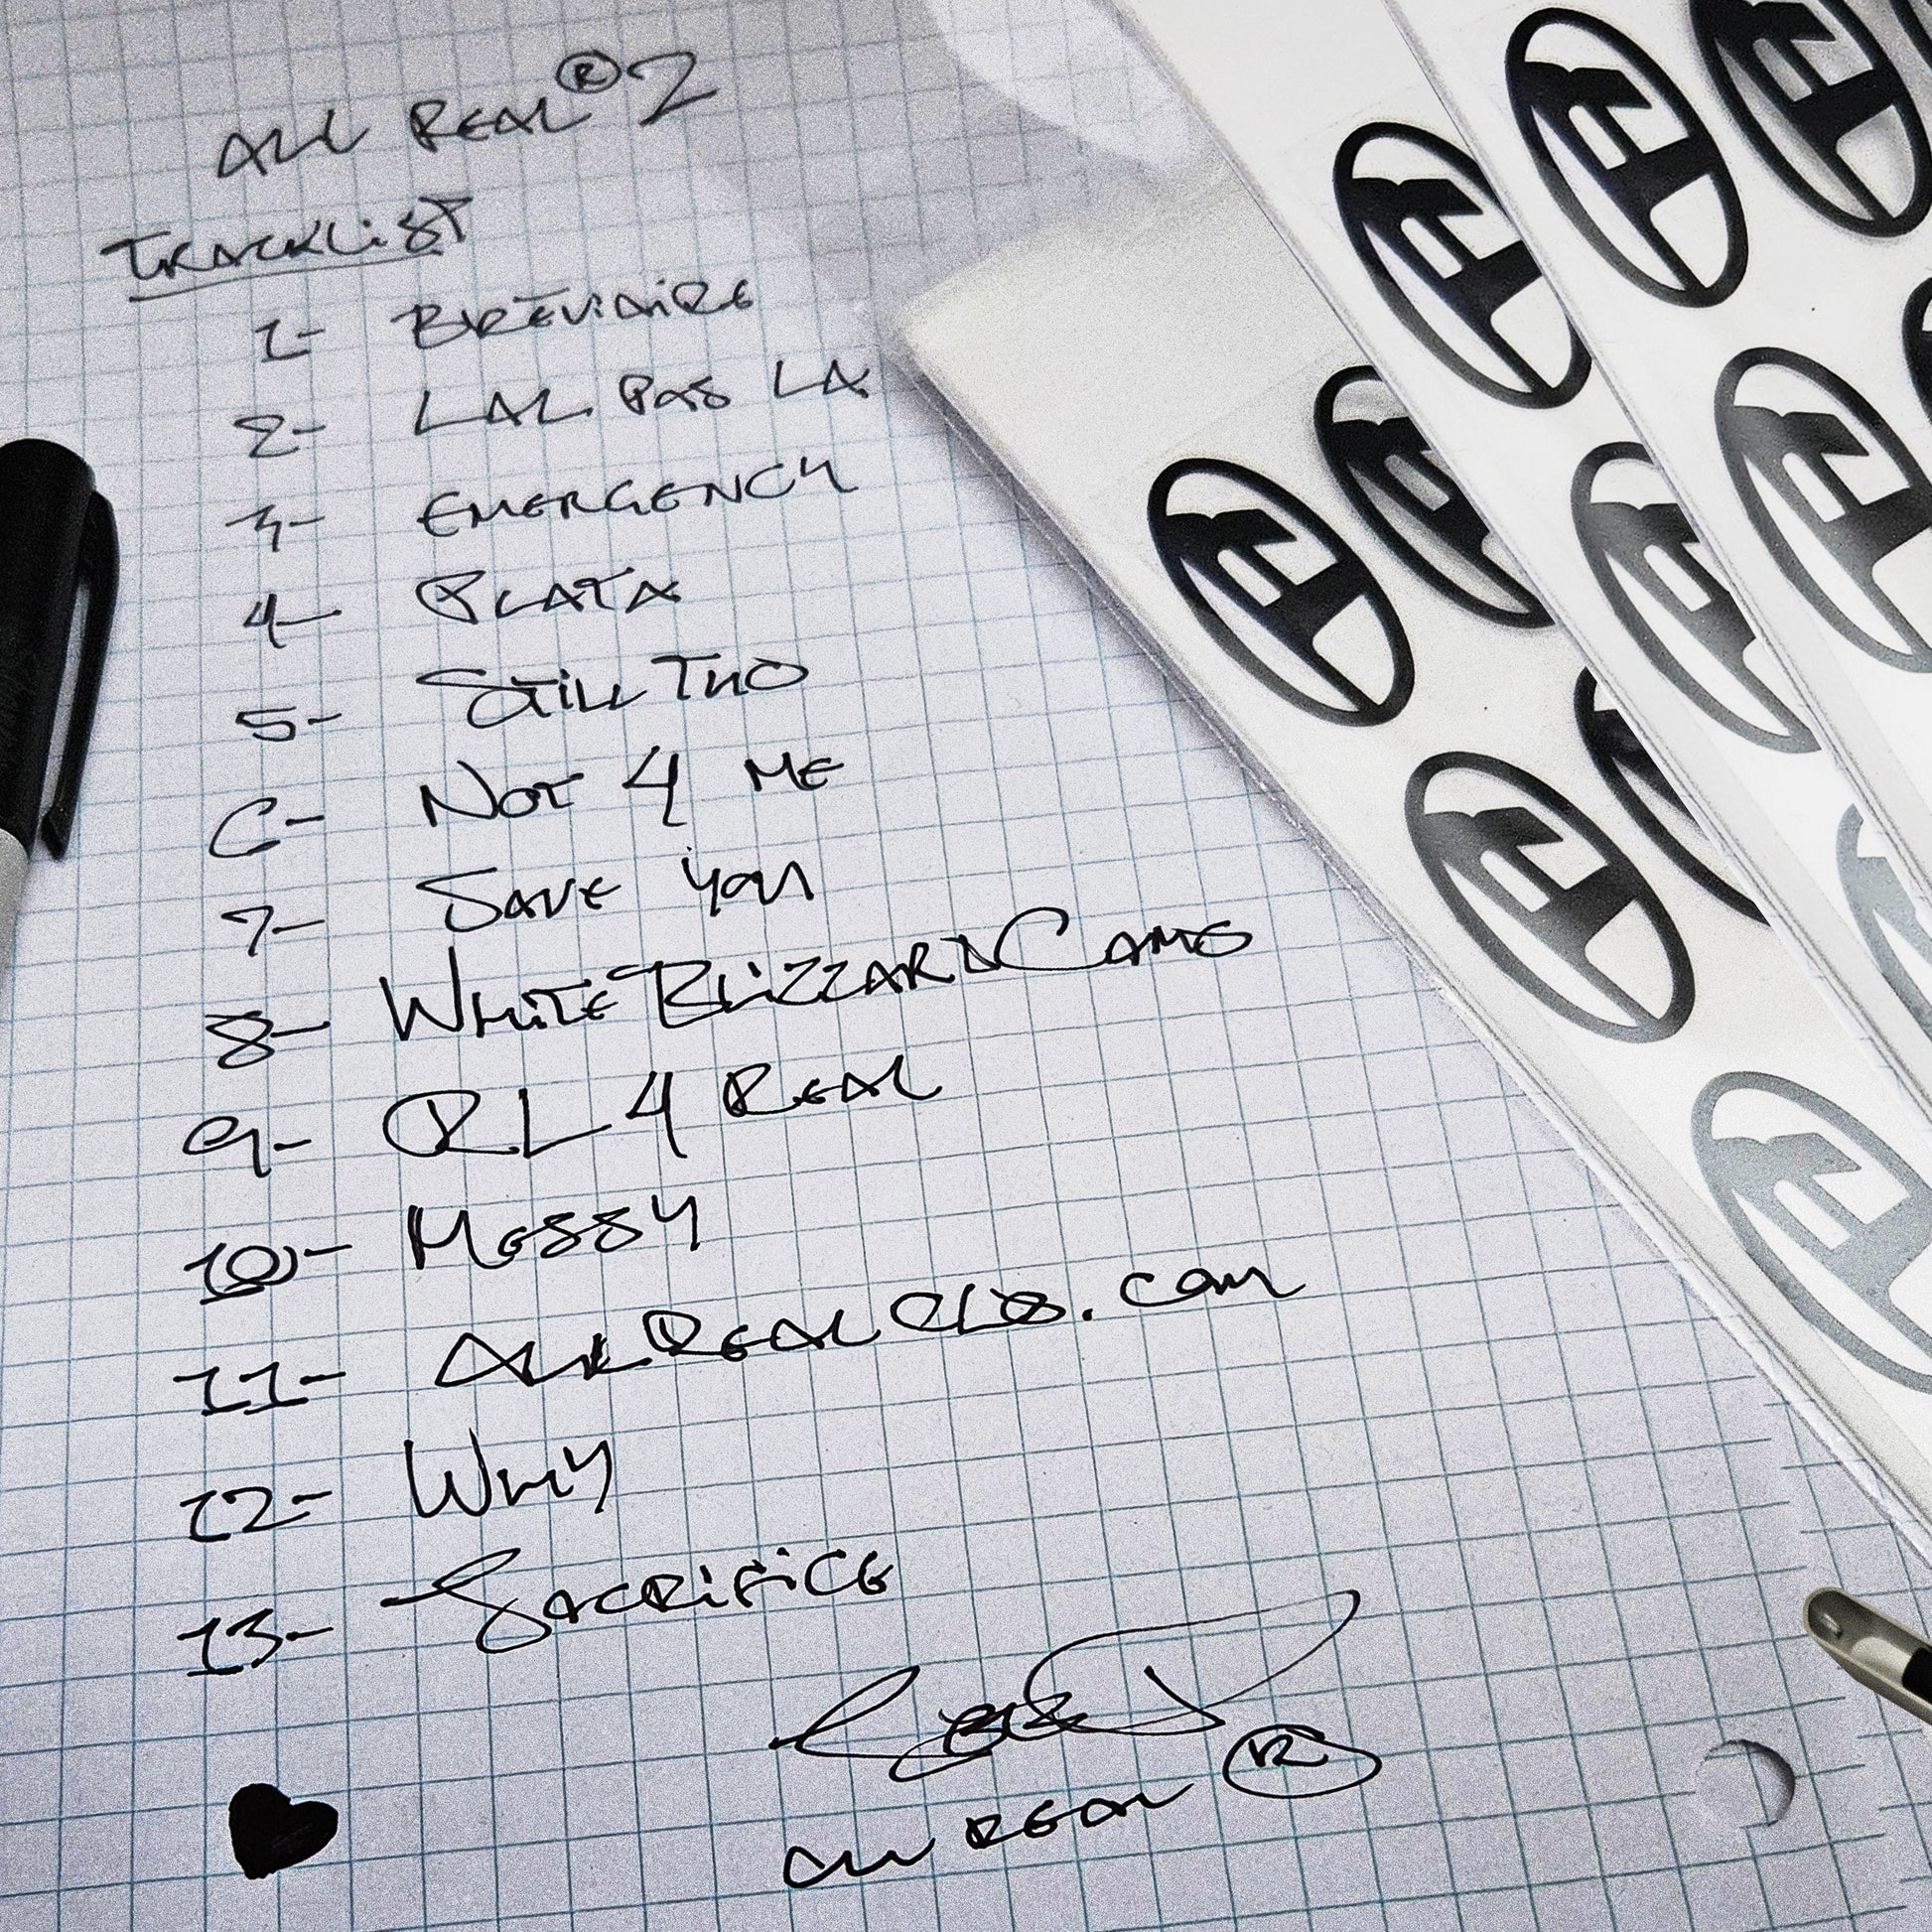 ALL REAL® 2
TRACKLIST
1- BREVIAIRE
2- LAL PAS LA
3- EMERGENCY
4- PLATA
5- STILL THO
6- NOT 4 ME
7- SAVE YOU
8- WHITE BLIZZARD CAMO
9- RL 4 REAL
10- MESSY
12- WHY
13- SACRIFICE
ALL REAL ®